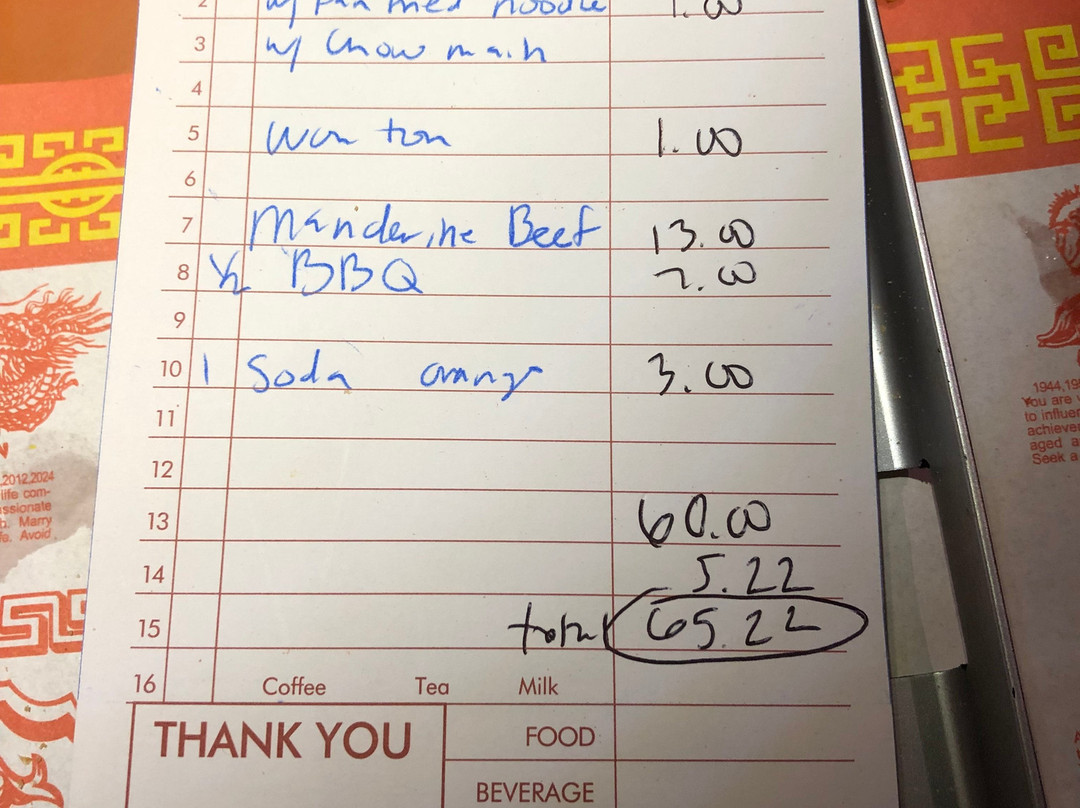 2 w/ Pan fried noodle 1.00
3 w/ Chow main
4
5 Won ton 1.00
6
7 Manderine Beef 13.00
8 1/2 BBQ 7.00
9
10 1 Soda orange 3.00
11
12
13 60.00
14 5.22
15 total 65.22
16 Coffee Tea Milk
THANK YOU
FOOD
BEVERAGE
2012,2024
life com-
ssionate
Marry
Avoid
1944,19
You are
to influen
achieve
aged a
Seek a